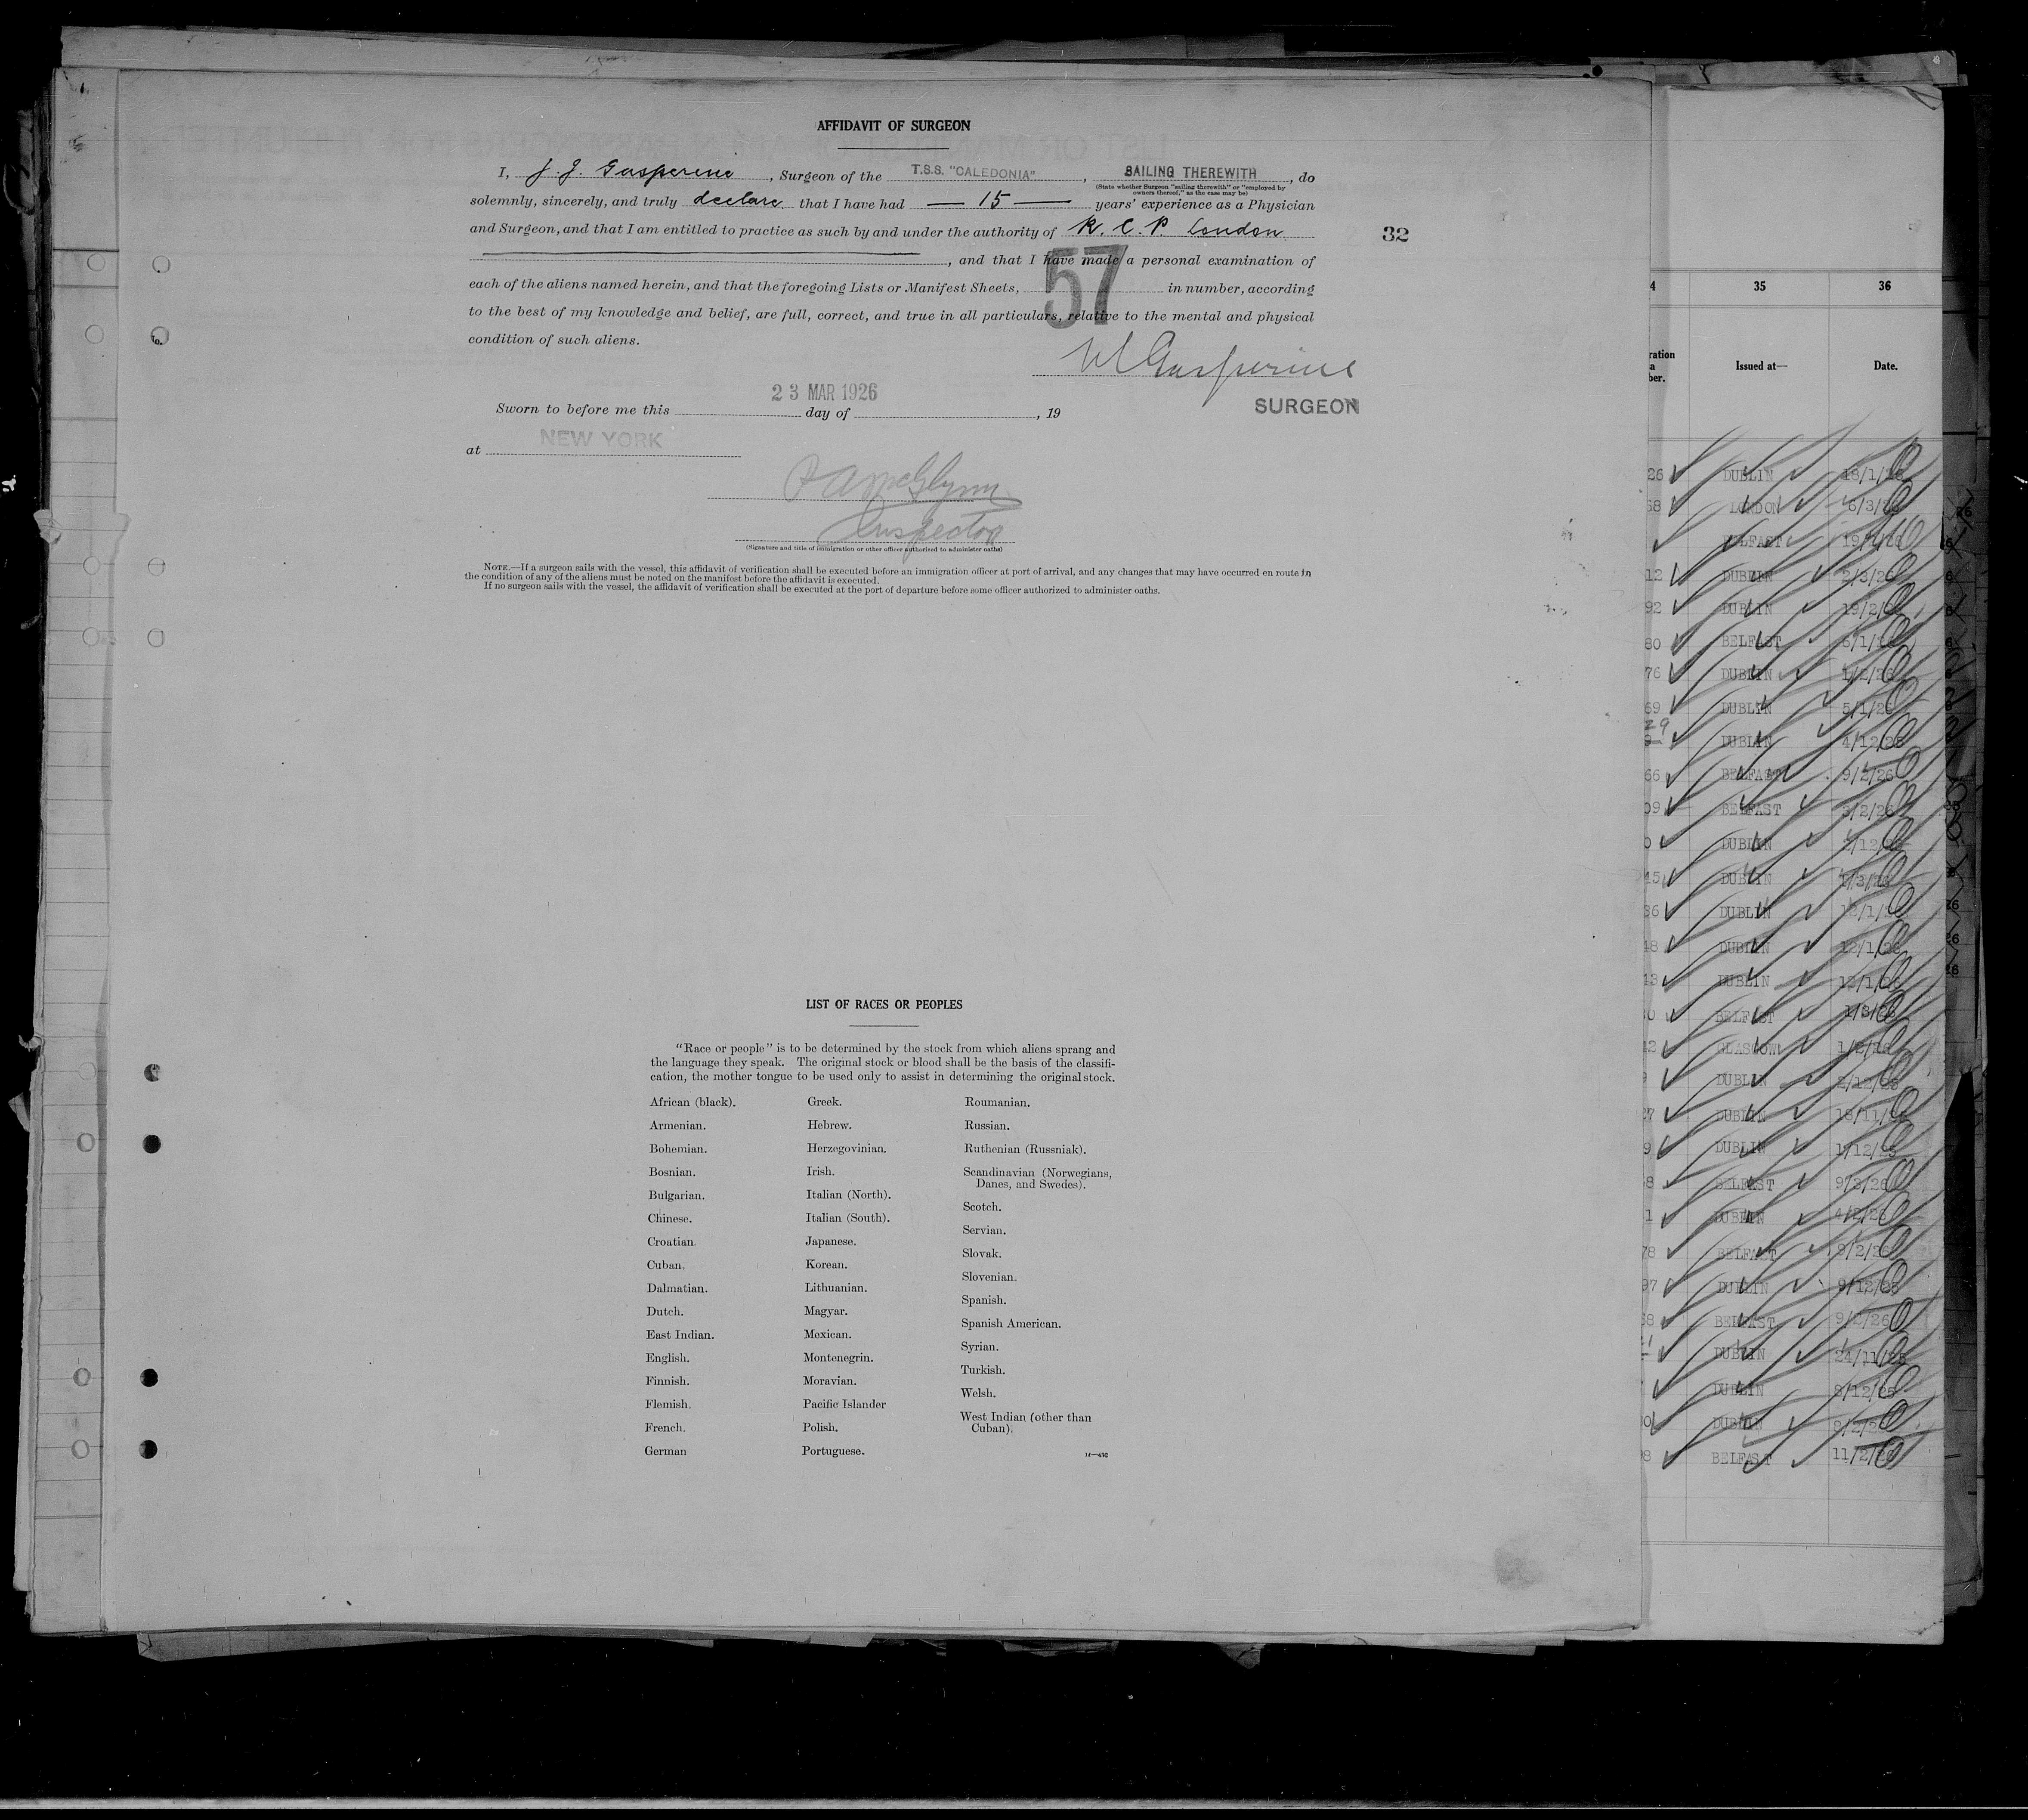 AFFIDAVIT OF SURGEON
I, J. J. Gasperine, Surgeon of the T.S.S. "CALEDONIA", SAILING THEREWITH, do
(State whether Surgeon "sailing therewith" or "employed by
owners thereof," as the case may be)
solemnly, sincerely, and truly declare that I have had — 15 — years' experience as a Physician
and Surgeon, and that I am entitled to practice as such by and under the authority of R. C. P. London
32
, and that I have made a personal examination of
each of the aliens named herein, and that the foregoing Lists or Manifest Sheets, 57 in number, according
to the best of my knowledge and belief, are full, correct, and true in all particulars, relative to the mental and physical
condition of such aliens.
Gasperine
SURGEON
23 MAR 1926
Sworn to before me this day of , 19
at NEW YORK
McGlynn
Inspector
(Signature and title of immigration or other officer authorized to administer oaths)
NOTE.—If a surgeon sails with the vessel, this affidavit of verification shall be executed before an immigration officer at port of arrival, and any changes that may have occurred en route in
the condition of any of the aliens must be noted on the manifest before the affidavit is executed.
If no surgeon sails with the vessel, the affidavit of verification shall be executed at the port of departure before some officer authorized to administer oaths.
LIST OF RACES OR PEOPLES
"Race or people" is to be determined by the stock from which aliens sprang and
the language they speak. The original stock or blood shall be the basis of the classifi-
cation, the mother tongue to be used only to assist in determining the original stock.
African (black).
Armenian.
Bohemian.
Bosnian.
Bulgarian.
Chinese.
Croatian.
Cuban.
Dalmatian.
Dutch.
East Indian.
English.
Finnish.
Flemish.
French.
German
Greek.
Hebrew.
Herzegovinian.
Irish.
Italian (North).
Italian (South).
Japanese.
Korean.
Lithuanian.
Magyar.
Mexican.
Montenegrin.
Moravian.
Pacific Islander
Polish.
Portuguese.
Roumanian.
Russian.
Ruthenian (Russniak).
Scandinavian (Norwegians,
Danes, and Swedes).
Scotch.
Servian.
Slovak.
Slovenian.
Spanish.
Spanish American.
Syrian.
Turkish.
Welsh.
West Indian (other than
Cuban).
35 36
Issued at— Date.
26 DUBLIN 18/1/26
68 LONDON 6/3/26
BELFAST
12 DUBLIN 2/3/26
92 DUBLIN 19/2/26
80 BELFAST
76 DUBLIN 1/2/26
69 DUBLIN 5/1/26
DUBLIN 4/12/25
66 BELFAST 9/2/26
09 BELFAST 3/2/26
0 DUBLIN 2/12/25
45 DUBLIN
36 DUBLIN 12/1/26
48 DUBLIN 12/1/26
43 DUBLIN 12/1/26
BELFAST 1/3/26
GLASGOW 1/2/26
DUBLIN 2/12/25
27 DUBLIN 18/11/25
9 DUBLIN 1/12/25
8 BELFAST 9/3/26
1 DUBLIN 4/2/26
78 BELFAST 9/2/26
97 DUBLIN 9/12/25
BELFAST 9/2/26
DUBLIN 24/11/25
DUBLIN 8/12/25
DUBLIN 8/2/26
8 BELFAST 11/2/26